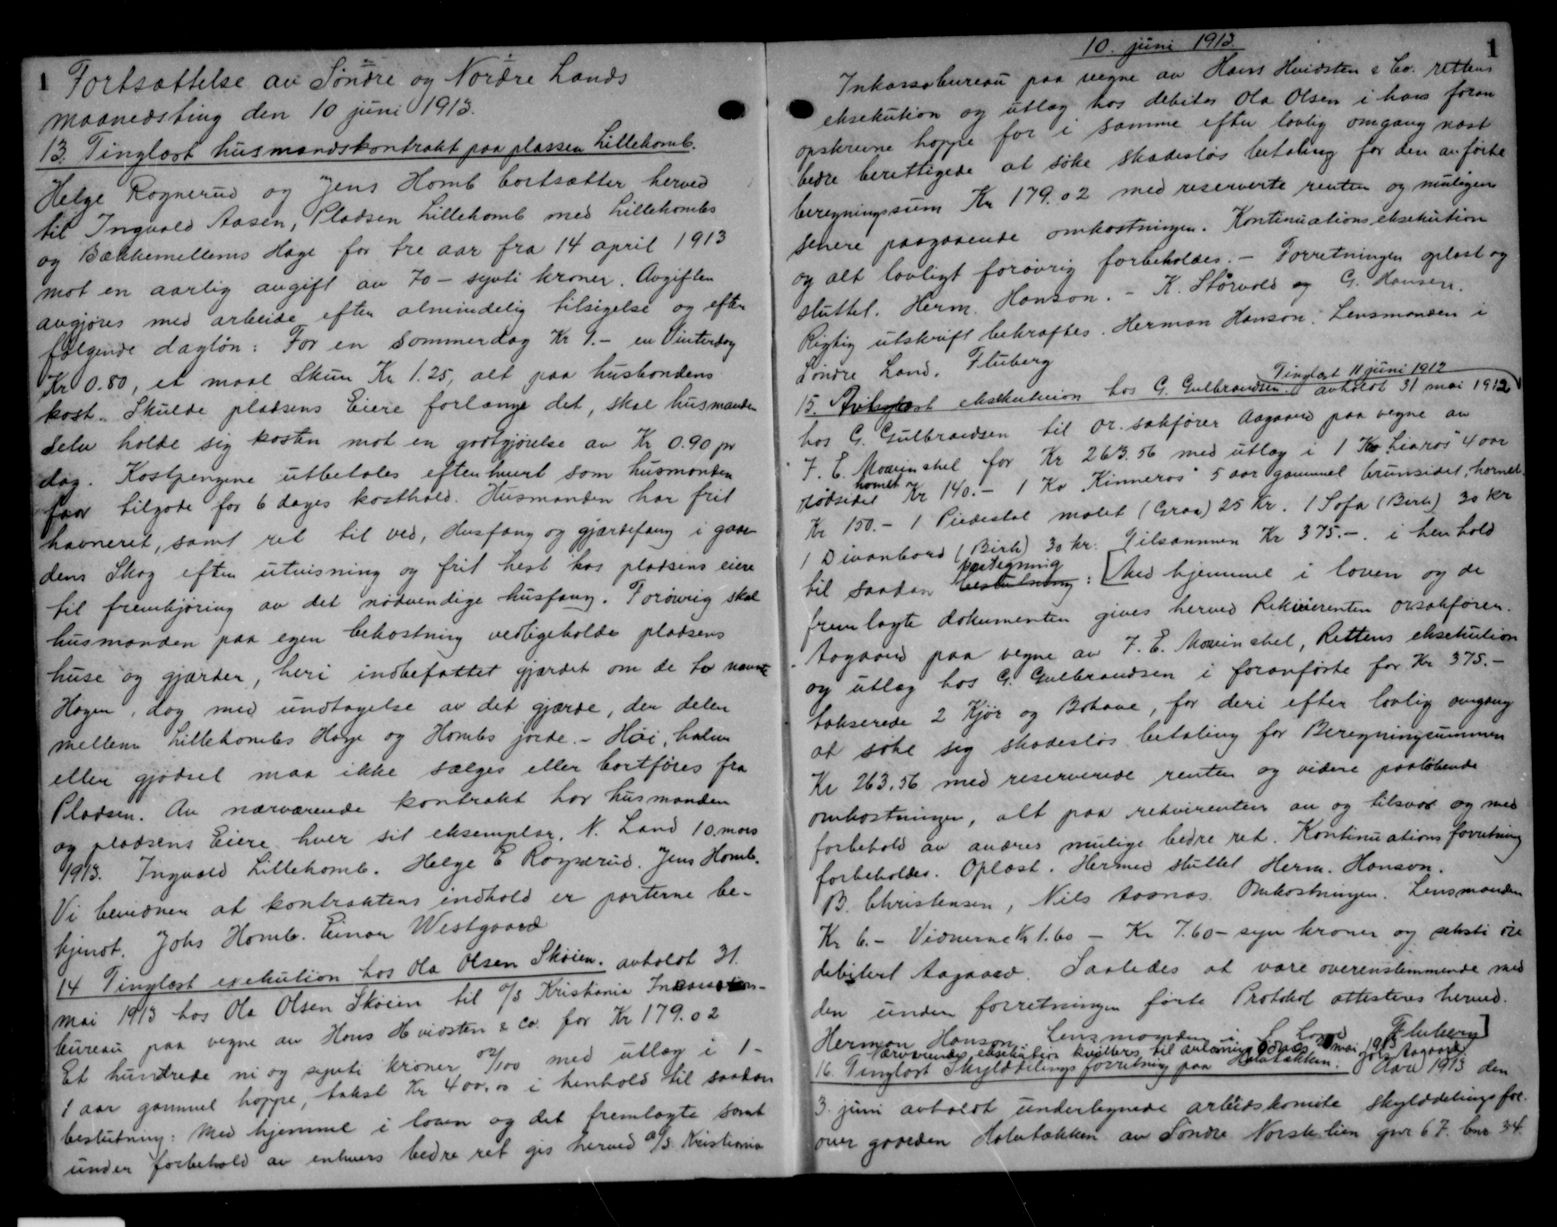 1 Fortsættelse av Søndre og Nordre Lands
maanedsting den 10 juni 1913.
13. Tinglæst husmandskontrakt paa plassen Lillehomb.
Helge Rognerud og Jens Homb bortsætter herved
til Ingvald Aasen, Pladsen Lillehomb med Lillehombs
og Bakkemellems Hage for tre aar fra 14 april 1913
mot en aarlig avgift av 70 – sytti kroner. Avgiften
avgjøres med arbeide efter almindelig tilsigelse og efter
følgende dagløn: For en Sommerdag Kr 1.- en Vinterdag
Kr 0.80, et maal Skur Kr 1.25, alt paa husbondens
kost. Skulde pladsens Eiere forlange det, skal husmanden
selv holde sig kosten mot en godtgjørelse av Kr 0.90 pr
dag. Kostpengene utbetales efterhvert som husmanden
faar tilgode for 6 dages kosthold. Husmanden har frit
havneret, samt ret til ved, Husfang og gjærdefang i gaar-
dens Skog efter utvisning og frit hest hos pladsens eiere
til fremkjøring av det nødvendige husfang. Forøvrig skal
husmanden paa egen bekostning vedligeholde pladsens
huse og gjærder, heri indbefattet gjærdet om de to nævnte
Hagen, dog med undtagelse av det gjærde, der deler
mellem Lillehombs Hage og Hombs jorde. – Høi, halm
eller gjødsel maa ikke sælges eller bortføres fra
Pladsen. Av nærværende kontrakt har husmanden
og pladsens Eiere hver sit eksemplar. N. Land 10. mars
1913. Ingvald Lillehomb. Helge E Rognerud. Jens Homb.
Vi bevidner at kontraktens indhold er parterne be-
kjendt. Johs Homb. Einar Westgaard
14 Tinglæst exekution hos Ola Olsen Skøien. avholdt 31.
mai 1913 hos Ola Olsen Skøien til A/S Kristiania Incasso-
bureau paa vegne av Hans Hvidsten & Co. for Kr 179.02
Et hundrede ni og sytti kroner 02/100 med utlæg i 1-
1 aar gammel hoppe, takst Kr 400,00 i henhold til saadan
beslutning: Med hjemmel i loven og det fremlagte samt
under forbehold av enhvers bedre ret gis herved A/S Kristiania
10. juni 1913 1
Inkassobureau paa vegne av Hans Hvidsten & Co. rettens
eksekution og utlæg hos debitor Ola Olsen i hans foran
opskrevne hoppe for i samme efter lovlig omgang næst
bedre berettigede at søke skadesløs betaling for den anførte
beregningssum Kr 179.02 med reserverte renter og muligens
senere paagaaende omkostninger. Kontinuations eksekution
og alt lovligt forøvrig forbeholdes. – Forretningen oplæst og
sluttet. Herm. Hanson. – K. Størvold og G. Hansen.
Rigtig utskrift bekræftes. Herman Hanson. Lensmanden i
Søndre Land. Fluberg
Tinglæst 11 juni 1912
15. eksekution hos G. Gulbrandsen. avholdt 31 mai 1912
hos G. Gulbrandsen til or. sakfører Aagaard paa vegne av
F. E. for Kr 263.56 med utlæg i 1 Ko "Liaros" 4 aar
rødsidet hornet Kr 140.- 1 Ko "Kinneros" 5 aar gammel brunsidet, hornet
Kr 150.- 1 Piedestal malet (Graa) 25 Kr. 1 Sofa (Birk) 30 Kr
1 Divanbord (Birk) 30 kr. Tilsammen Kr 375.-. i henhold
til saadan beslutning paategning: [Med hjemmel i loven og de
fremlagte dokumenter gives herved Rekvirenten orsakfører
Aagaard paa vegne av F. E. Rettens eksekution
og utlæg hos G. Gulbrandsen i foranførte for Kr 375.-
takserede 2 Kjør og Bohave, for deri efter lovlig omgang
at søke sig skadesløs betaling for Beregningssummen
Kr 263.56 med reserverede renter og videre paaløbende
omkostninger, alt paa rekvirentens an og tilsvar og med
forbehold av andres mulige bedre ret. Kontinuations forretning
forbeholdes. Oplæst. Hermed sluttet Herm. Hanson.
B. Christensen, Nils Aasnæs. Omkostninger. Lensmanden
Kr 6.- Vidnerne Kr 1.60 – Kr 7.60 – syv kroner og seksti øre
debitert Aagaard. Saaledes at være overensstemmende med
den under forretningen førte Protokol attesteres herved.
Herman Hanson Lensmanden i S. Land Fluberg]
Nærværende eksekution kvitteres til avlæsning mai 1913 Johs Aagaard
16. Tinglæst Skylddelingsforretning paa Halvtækken. Aar 1913 den
3. juni avholdt undertegnede arbeidskomite skylddelingsfor.
over gaarden Halvtækken av Søndre Norsk lien gnr 67. bnr 34.